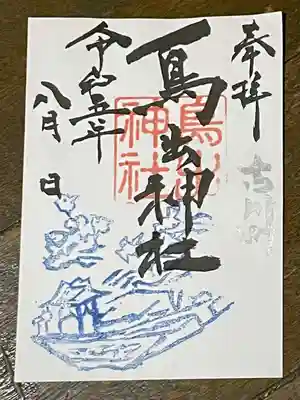 奉拝
鳥出神社
令和五年
八月 日
鳥出
神社